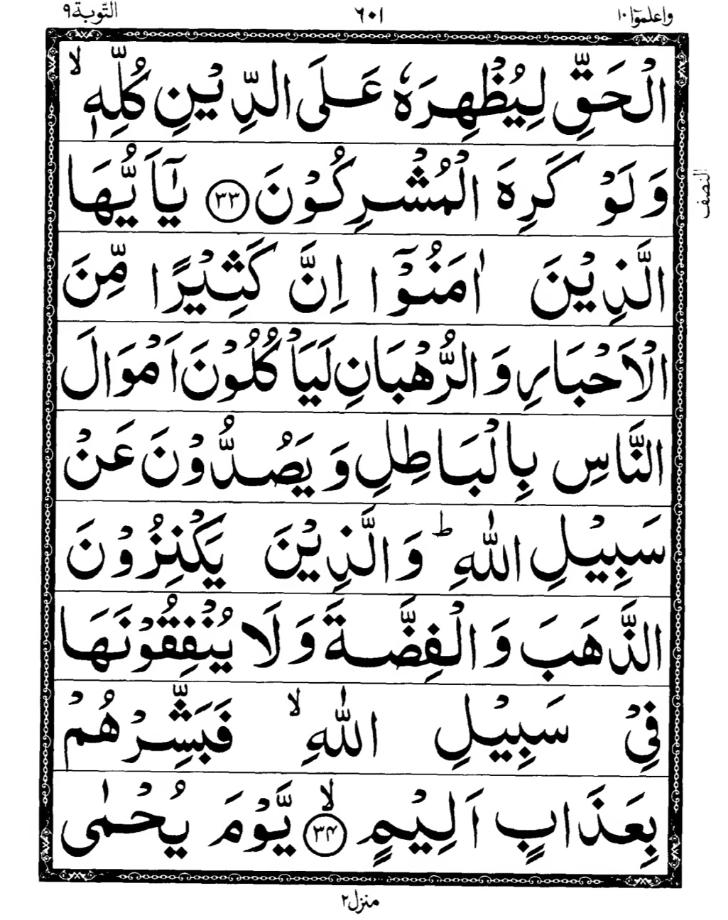 واعلموٓا ١٠ ٦٠١ التّوبة ٩
الْحَقِّ لِيُظْهِرَهٗ عَلَى الدِّيْنِ كُلِّهٖ ۙ
وَلَوْ كَرِهَ الْمُشْرِكُوْنَ ﴿٣٣﴾ يٰۤاَيُّهَا
النصف
الَّذِيْنَ اٰمَنُوْۤا اِنَّ كَثِيْرًا مِّنَ
الْاَحْبَارِ وَالرُّهْبَانِ لَيَاْكُلُوْنَ اَمْوَالَ
النَّاسِ بِالْبَاطِلِ وَيَصُدُّوْنَ عَنْ
سَبِيْلِ اللّٰهِ ؕ وَالَّذِيْنَ يَكْنِزُوْنَ
الذَّهَبَ وَالْفِضَّةَ وَلَا يُنْفِقُوْنَهَا
فِيْ سَبِيْلِ اللّٰهِ ۙ فَبَشِّرْهُمْ
بِعَذَابٍ اَلِيْمٍ ۙ﴿٣٤﴾ يَّوْمَ يُحْمٰى
منزل٢